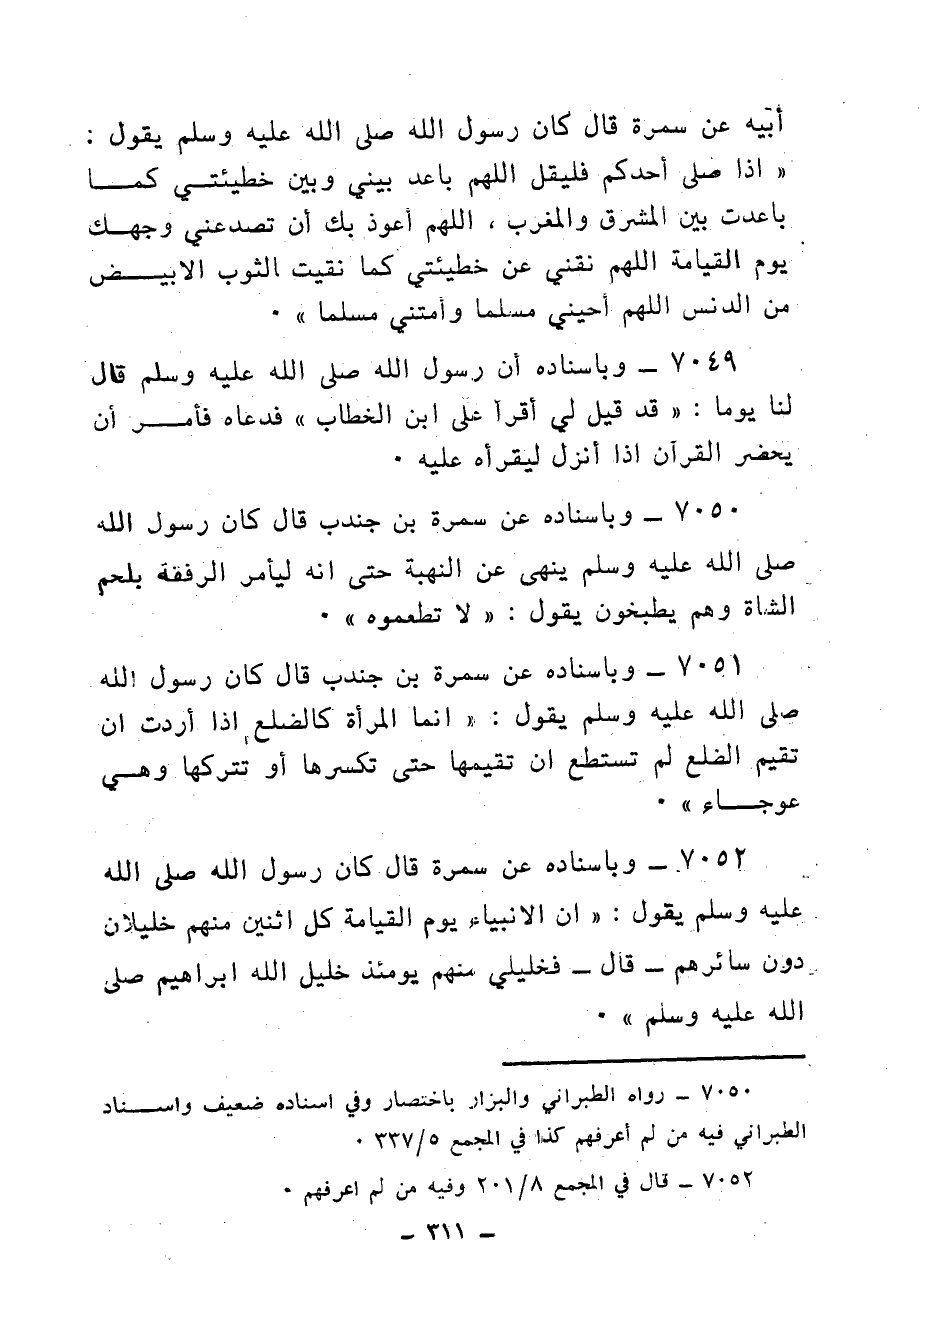 أبيه عن سمرة قال كان رسول الله صلى الله عليه وسلم يقول :
« اذا صلى أحدكم فليقل اللهم باعد بيني وبين خطيئتي كما
باعدت بين المشرق والمغرب ، اللهم أعوذ بك أن تصدعني وجهك
يوم القيامة اللهم نقني عن خطيئتي كما نقيت الثوب الابيض
من الدنس اللهم أحيني مسلما وأمتني مسلما » ٠
٧٠٤٩ ــ وباسناده أن رسول الله صلى الله عليه وسلم قال
لنا يوما : « قد قيل لي أقرآ على ابن الخطاب » فدعاه فأمر أن
يحضر القرآن اذا أنزل ليقرأه عليه ٠
٧٠٥٠ ــ وباسناده عن سمرة بن جندب قال كان رسول الله
صلى الله عليه وسلم ينهى عن النهبة حتى انه ليأمر الرفقة بلحم
الشاة وهم يطبخون يقول : « لا تطعموه » ٠
٧٠٥١ ــ وباسناده عن سمرة بن جندب قال كان رسول الله
صلى الله عليه وسلم يقول : « انما المرأة كالضلع اذا أردت ان
تقيم الضلع لم تستطع ان تقيمها حتى تكسرها أو تتركها وهي
عوجاء » ٠
٧٠٥٢ ــ وباسناده عن سمرة قال كان رسول الله صلى الله
عليه وسلم يقول : « ان الانبياء يوم القيامة كل اثنين منهم خليلان
دون سائرهم ــ قال ــ فخليلي منهم يومئذ خليل الله ابراهيم صلى
الله عليه وسلم » ٠
٧٠٥٠ ــ رواه الطبراني والبزار باختصار وفي اسناده ضعيف واسناد
الطبراني فيه من لم أعرفهم كذا في المجمع ٣٣٧/٥ ٠
٧٠٥٢ ــ قال في المجمع ٢٠١/٨ وفيه من لم اعرفهم ٠
ــ ٣١١ ــ